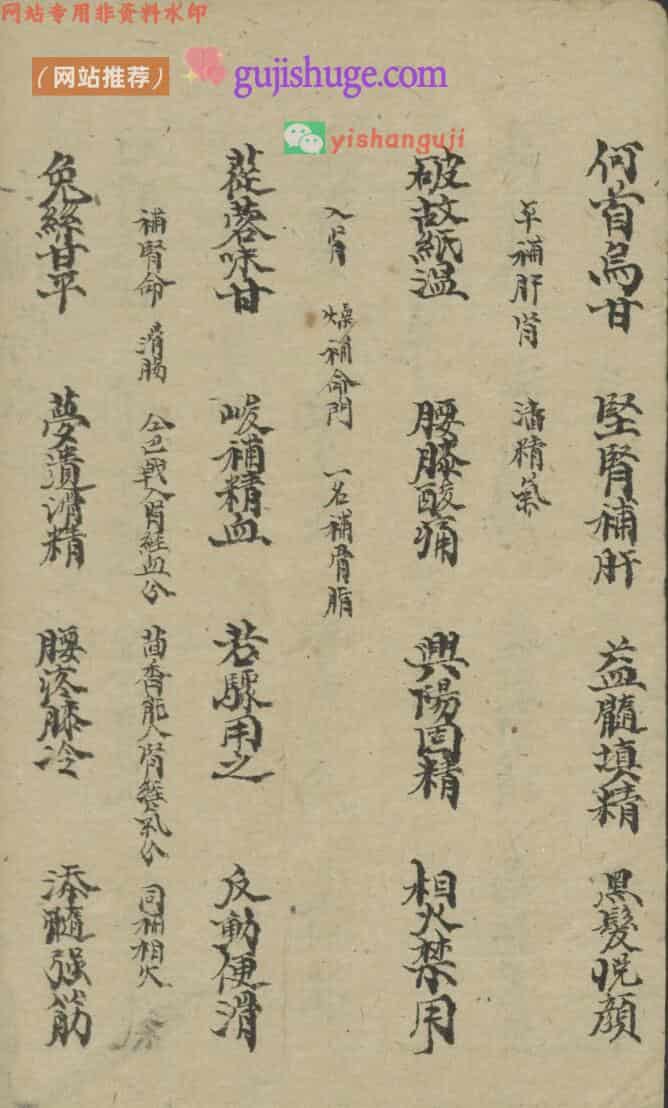 网站专用非资料水印
（网站推荐） gujishuge.com
yishanguji
何首烏甘 堅腎補肝 益髓填精 黑髮悅顔
平補肝腎 濇精氣
破故紙温 腰膝酸痛 興陽固精 相火禁用
入腎 燥補命門 一名補骨脂
蓯蓉味甘 峻補精血 若驟用之 反動便滑
補腎命 滑腸 仝巴戟入腎經血分 茴香能入腎經氣分 同補相火
兔絲甘平 夢遺滑精 腰疼膝冷 添髓强筋